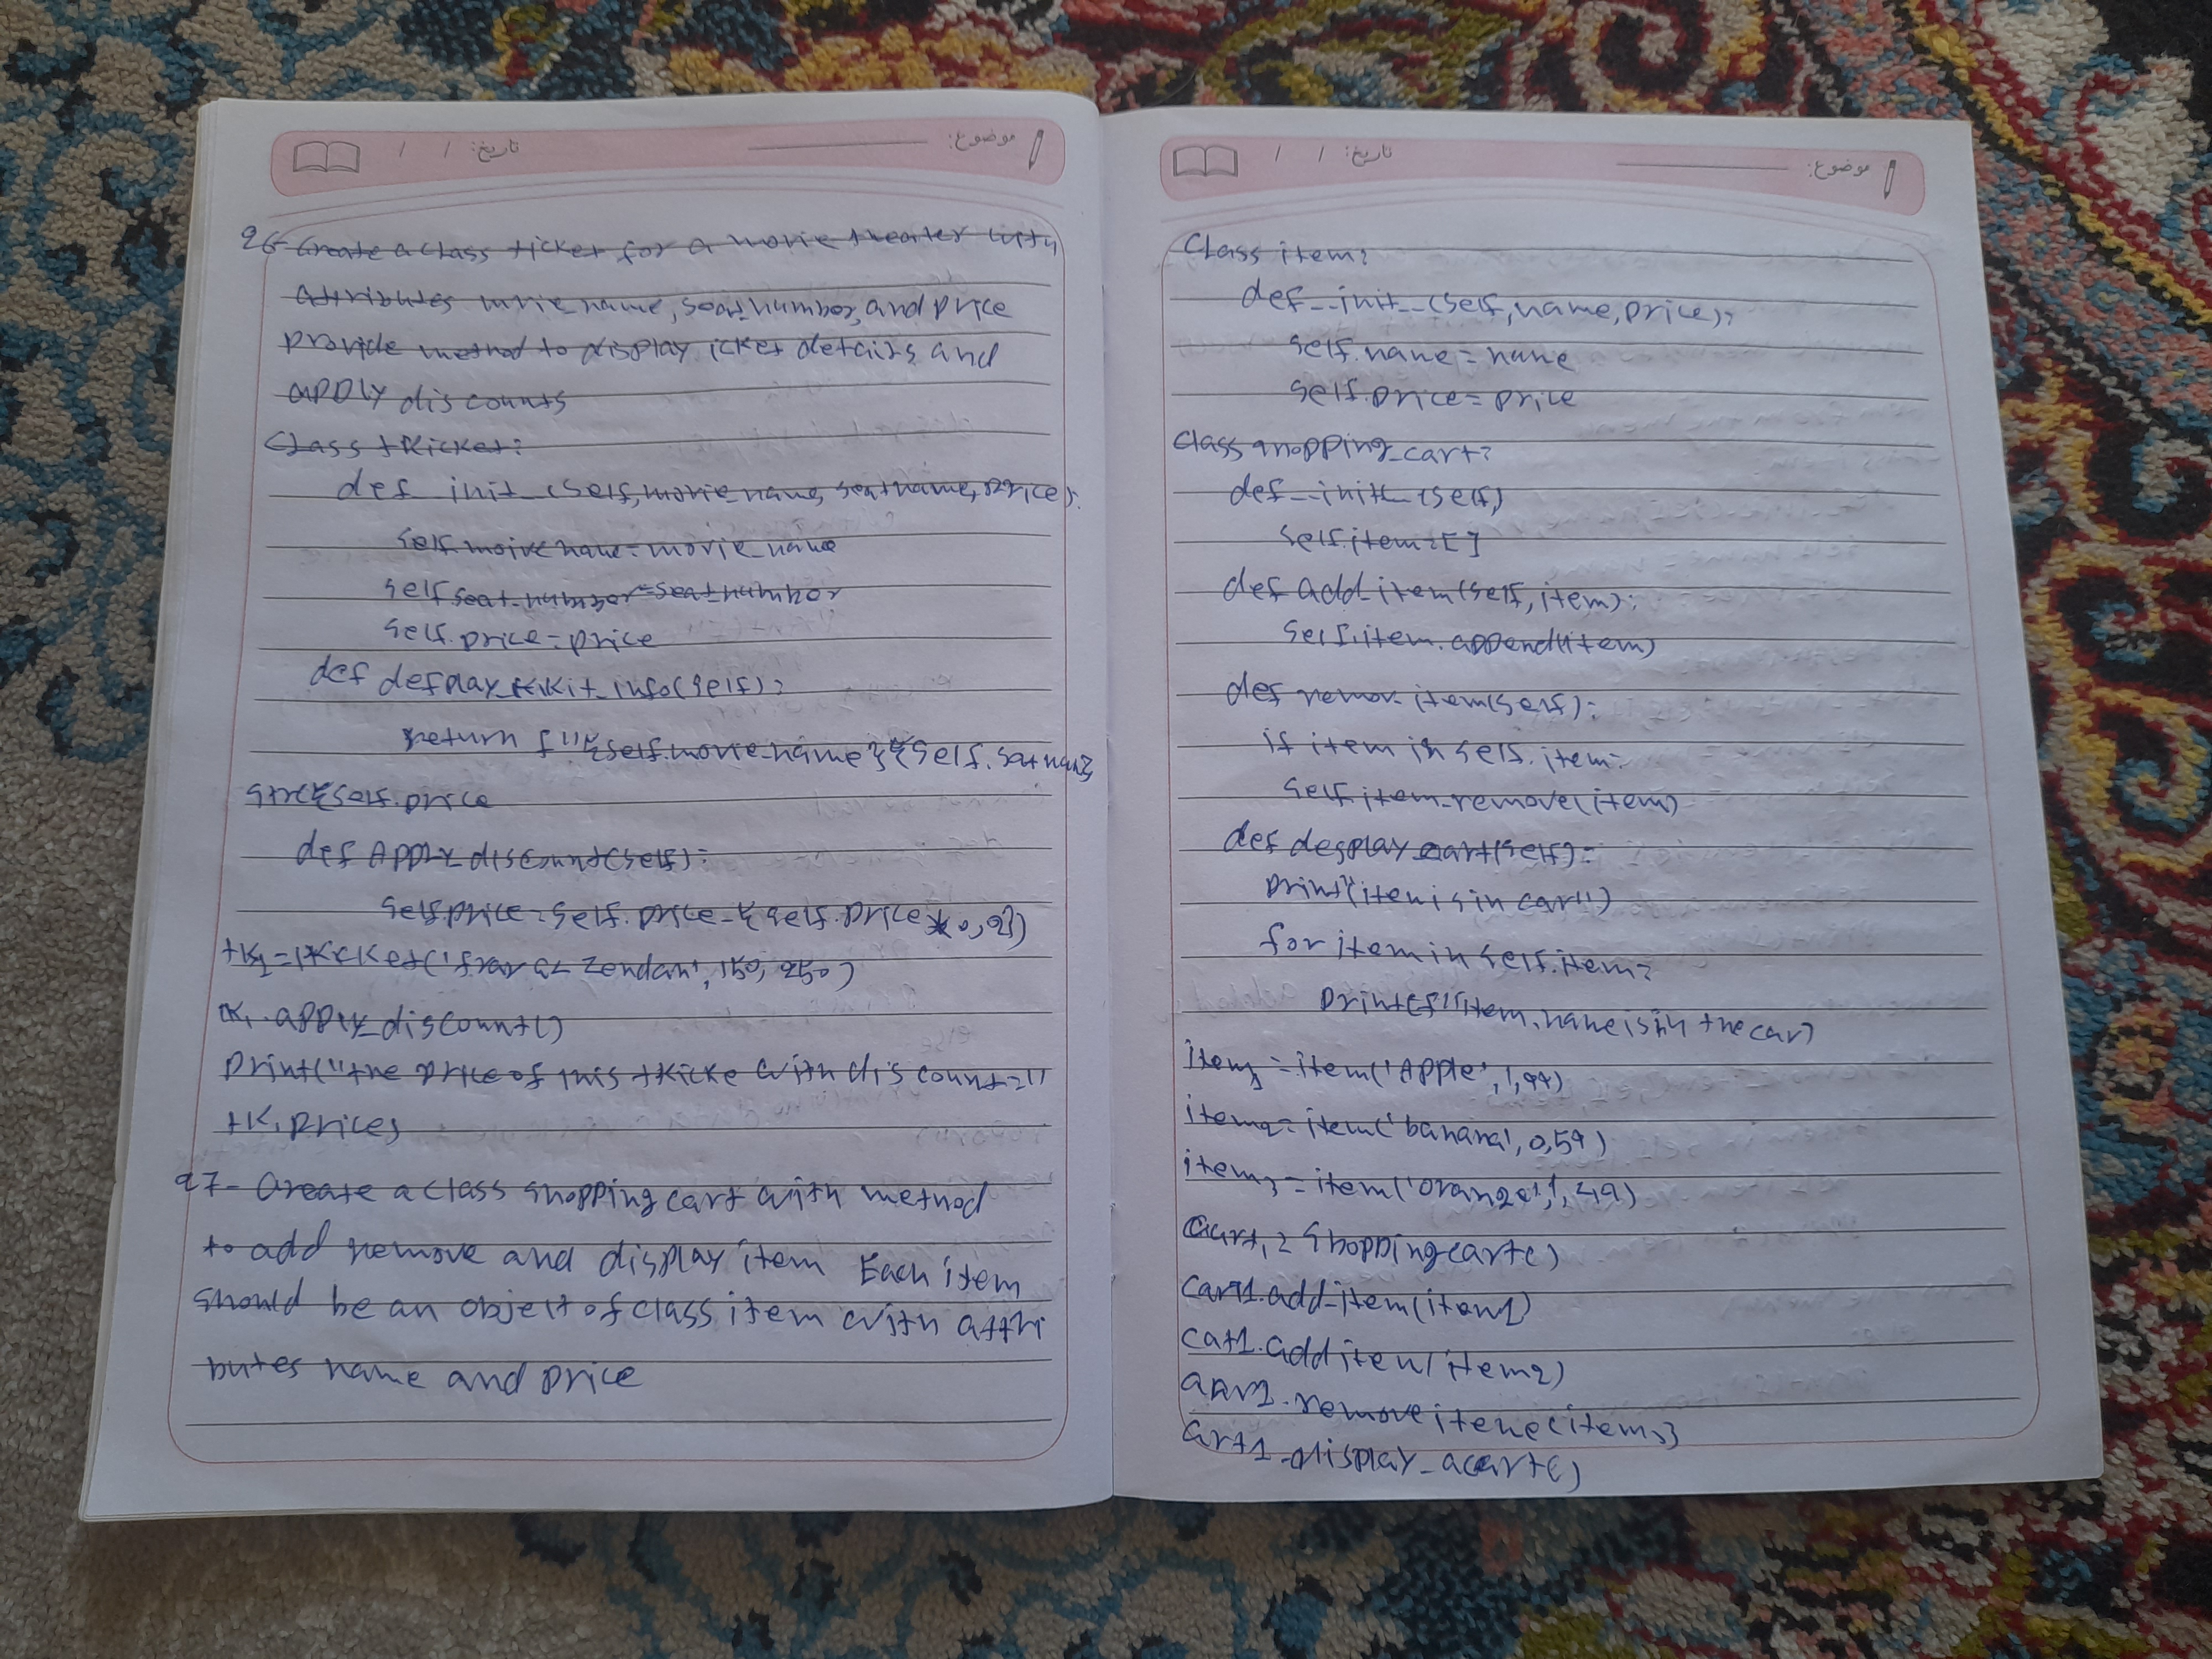 موضوع:
تاریخ: / /
26-Create a class ticker for a movie theater with
attributes movie name, seat number, and price
provide method to display icket details and
apply discounts
class tkicket:
def init_(self, movie_name, seatname, price):
self.moive name = movie_name
self.seat number = seat number
self.price = price
def defday_tkikit_info(self):
return f"{self.movie_name}{self.satnum}
{self.price
def apply_discound(self):
self.price = self.price - (self.price * 0,2)
tk1 = tkicket('frar az zendan', 150, 250)
tk1.apply_discount()
print("the price of this tkicke with discount = "
tk1.price)
27- Create a class shopping cart with method
to add remove and display item Each item
should be an object of class item with attri
butes name and price
موضوع:
تاریخ: / /
class item:
def__init__(self, name, price):
self.name = name
self.price = price
class shopping_cart:
def__init__(self)
self.item=[]
def add_item(self, item):
self.item.append(item)
def remov-item(self):
if item in self.item:
self.item-remove(item)
def desplay_cart(self):
print("item is in cart")
for item in self.item:
print(f"item.name is in the car)
item1 = item('Apple', 1,99)
item2 = item('banana', 0,59)
item3 = item('orange', 1,49)
cart1 = shoppingcart()
cart1.add-item(item1)
cart1.add item(item2)
cart1.remove item(item3)
cart1-display_acart()